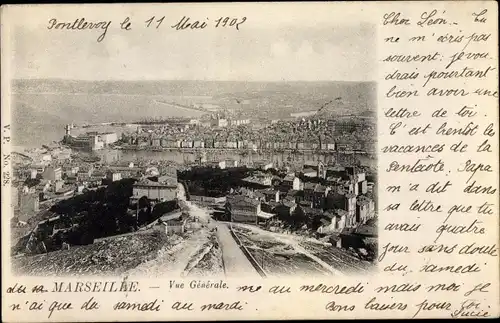 Pontlevoy le 11 Mai 1902
Cher Léon. Tu
ne m'écris pas
souvent. je vou-
drais pourtant
bien avoir une
lettre de toi.
C'est bientôt les
vacances de la
Pentecôte, Papa
m'a dit dans
sa lettre que tu
avais quatre
jours sans doute
du samedi
au mercredi mais moi je
n'ai que du samedi au mardi
V. P. No 228.
MARSEILLE. — Vue Générale.
Bons baisers pour toi
Lucie